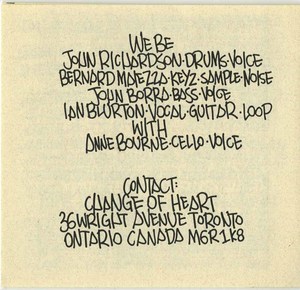 WE BE
JOHN RICHARDSON·DRUMS·VOICE
BERNARD MAIEZZA·KEYZ·SAMPLE·NOISE
JOHN BORRA·BASS·VOICE
IAN BLURTON·VOCAL·GUITAR·LOOP
WITH
ANNE BOURNE·CELLO·VOICE
CONTACT:
CHANGE OF HEART
36 WRIGHT AVENUE TORONTO
ONTARIO CANADA M6R 1K8